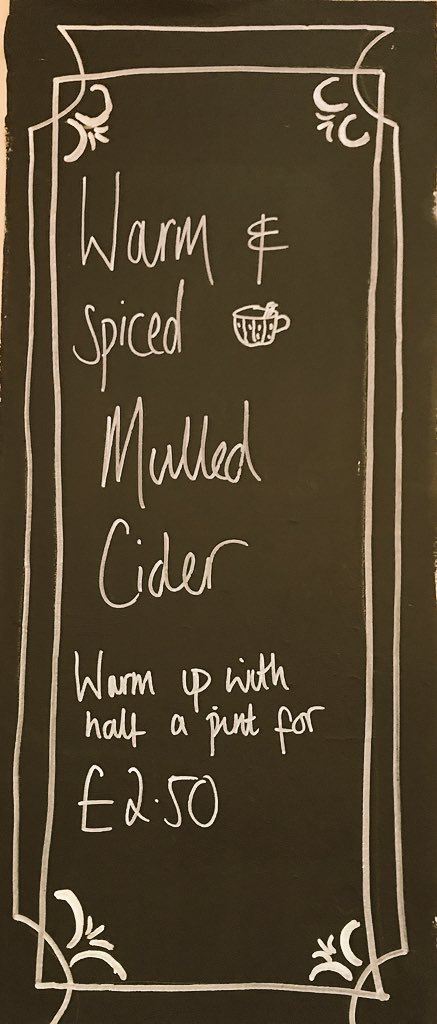 Warm &
spiced
Mulled
Cider
Warm up with
half a pint for
£2.50